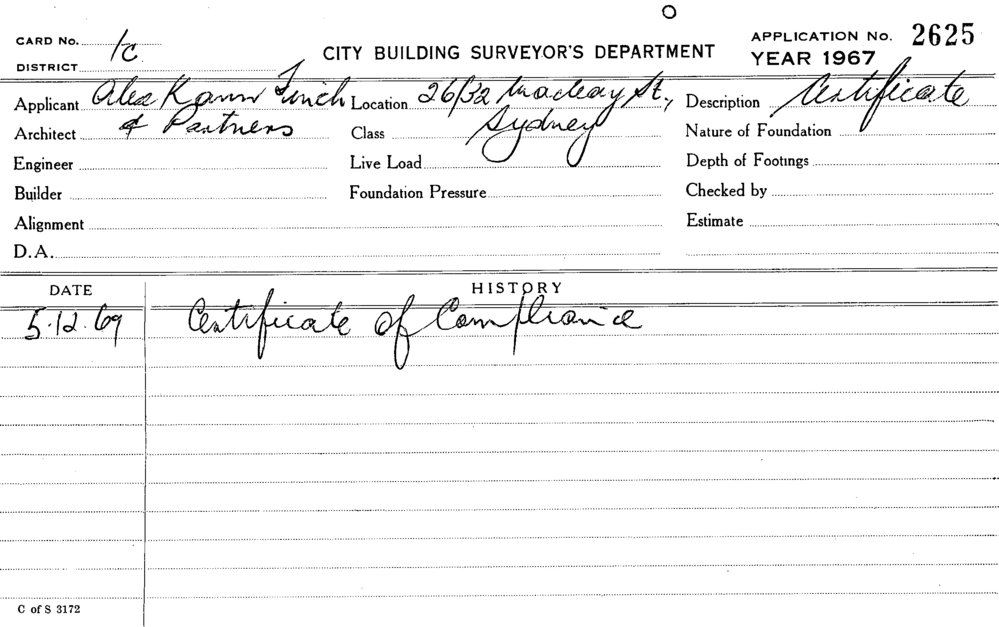 CARD No. 1c
DISTRICT
CITY BUILDING SURVEYOR'S DEPARTMENT
APPLICATION No. 2625
YEAR 1967
Applicant Alex Kann Finch Location 26/32 Macleay St., Description Certificate
Architect & Partners Class Sydney Nature of Foundation
Engineer Live Load Depth of Footings
Builder Foundation Pressure Checked by
Alignment Estimate
D.A.
DATE HISTORY
5.12.69 Certificate of Compliance
C of S 3172